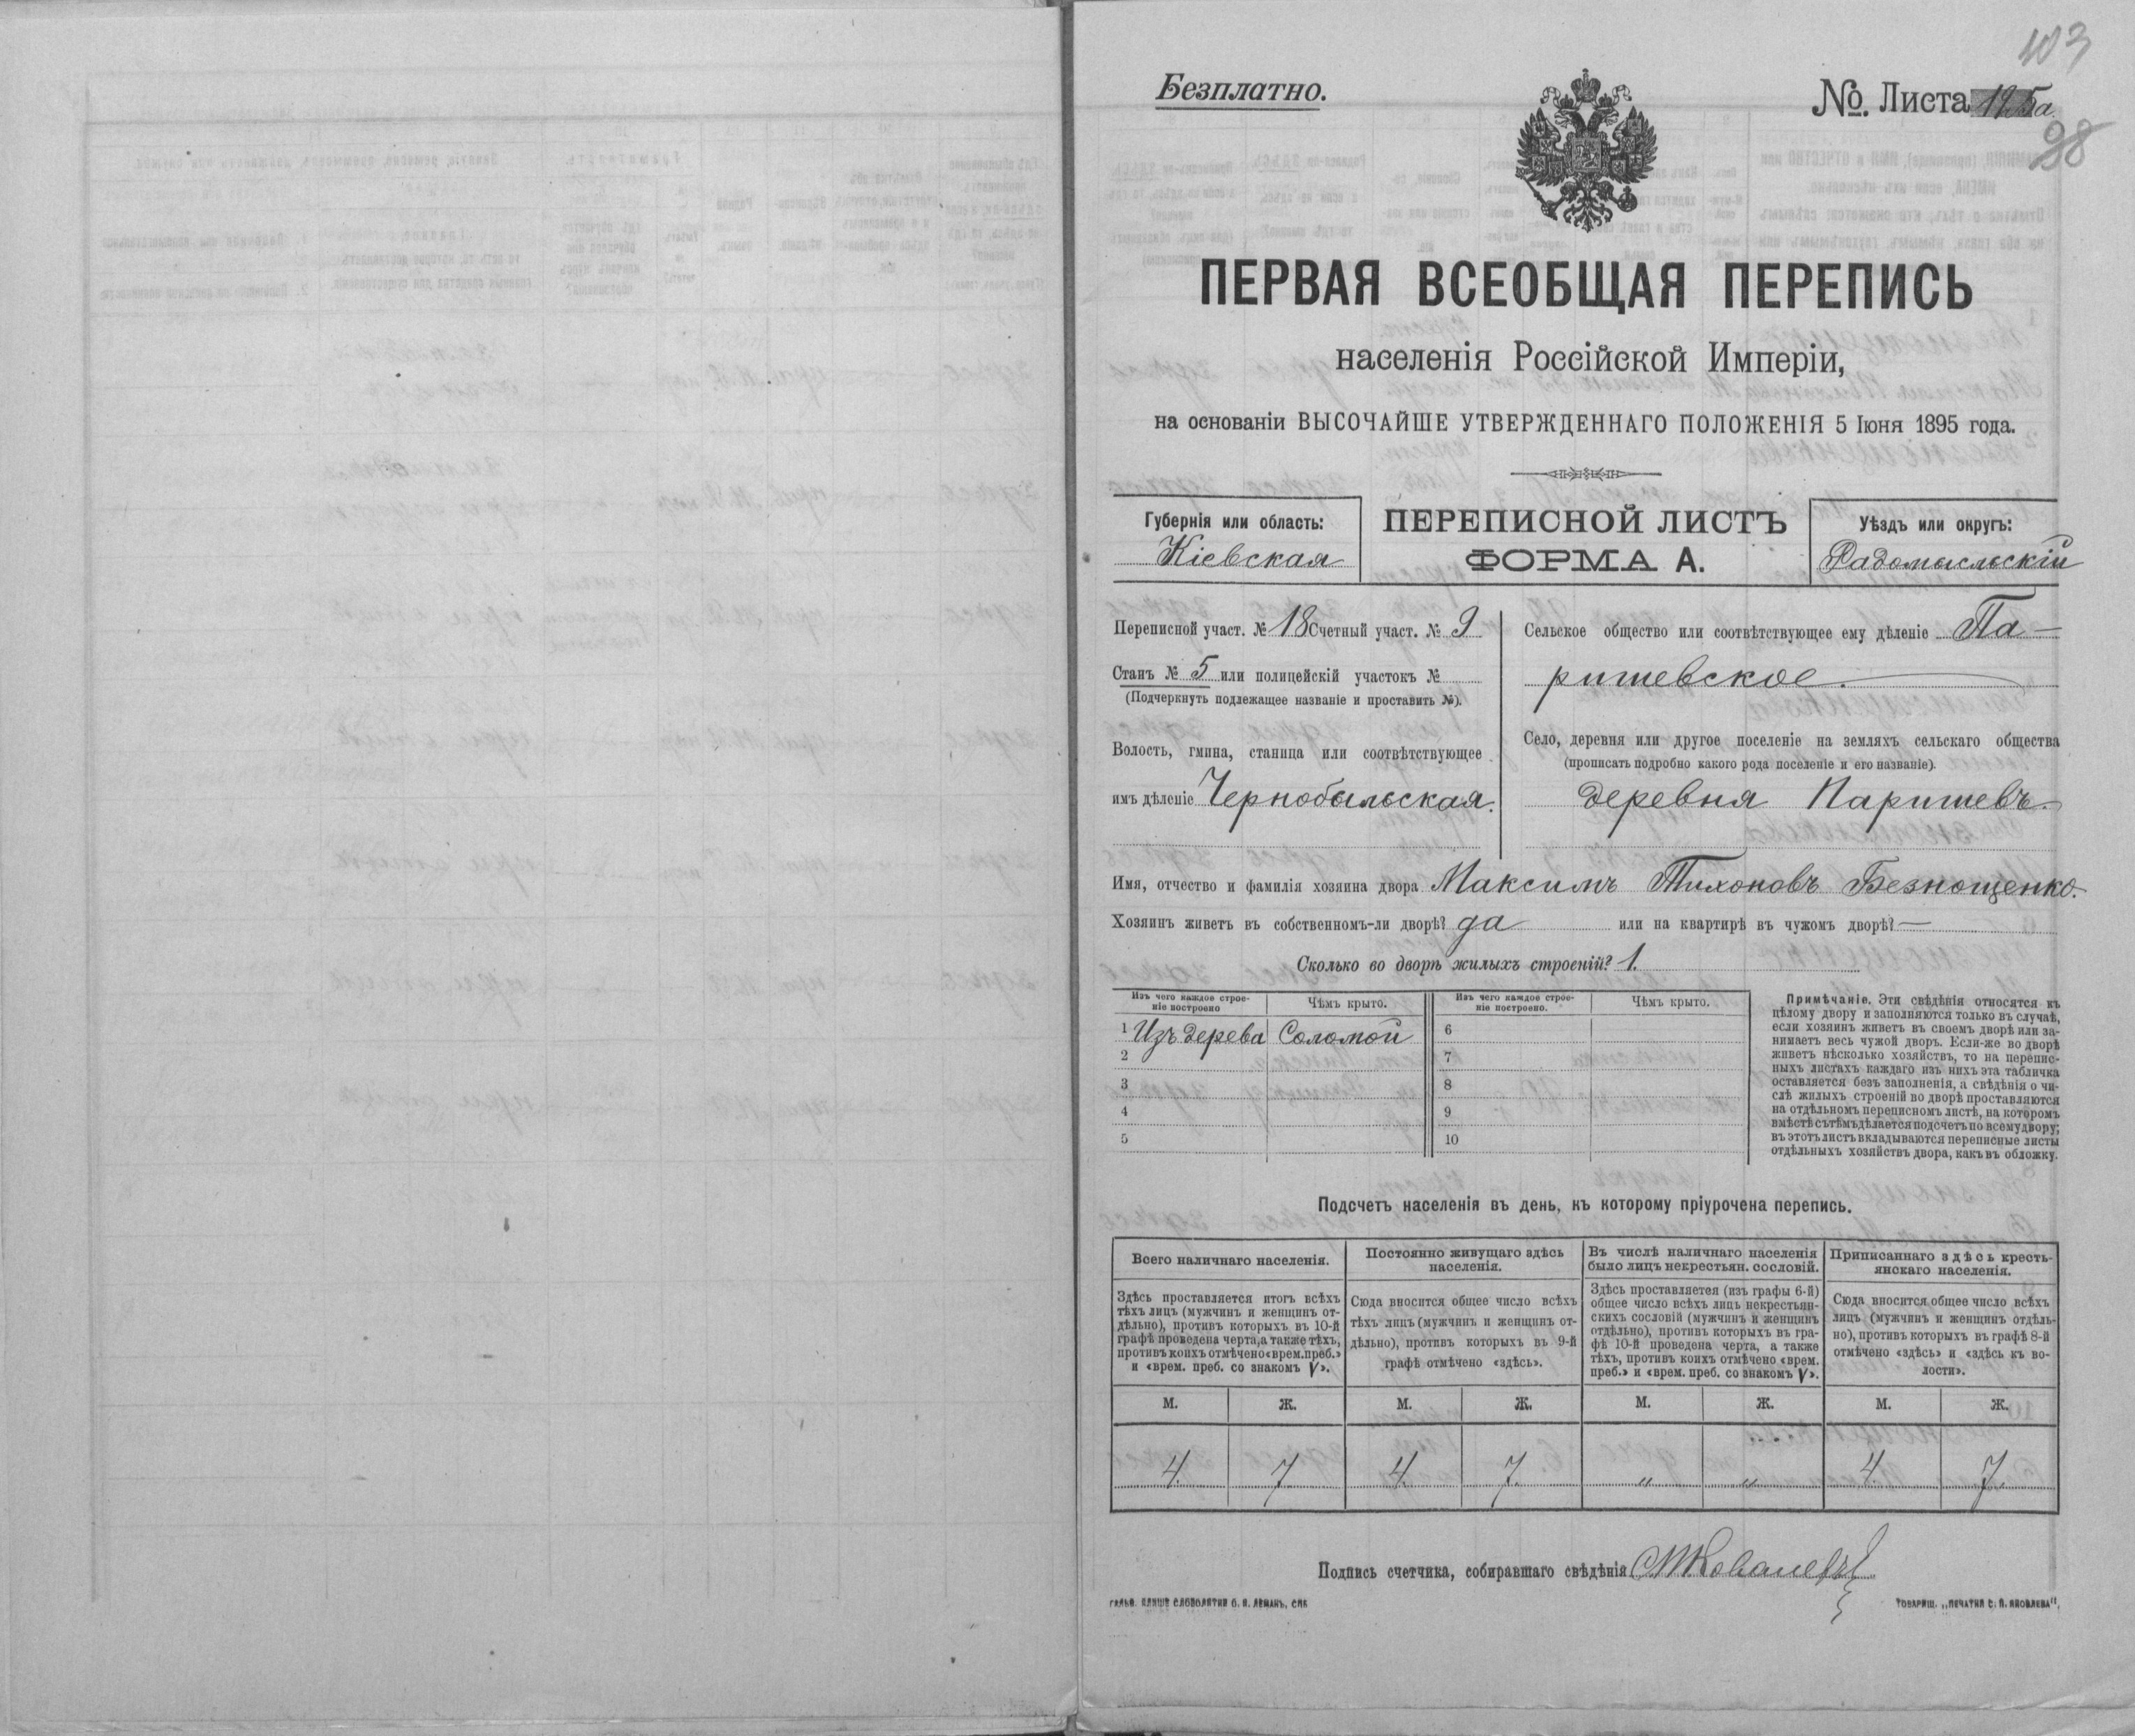 103
Безплатно.
№ Листа 125а.
98
ПЕРВАЯ ВСЕОБЩАЯ ПЕРЕПИСЬ
населенія Россійской Имперіи,
на основаніи ВЫСОЧАЙШЕ УТВЕРЖДЕННАГО ПОЛОЖЕНІЯ 5 Іюня 1895 года.
Губернія или область:
Кіевская
ПЕРЕПИСНОЙ ЛИСТЪ
ФОРМА А.
Уѣздъ или округъ:
Радомысльскій
Переписной участ. № 18 Счетный участ. № 9
Станъ № 5 или полицейскій участокъ №
(Подчеркнуть подлежащее названіе и проставить №).
Волость, гмина, станица или соотвѣтствующее
имъ дѣленіе Чернобыльская.
Сельское общество или соотвѣтствующее ему дѣленіе Па-
ришевское.
Село, деревня или другое поселеніе на земляхъ сельскаго общества
(прописать подробно какого рода поселеніе и его названіе).
деревня Паришевъ
Имя, отчество и фамилія хозяина двора Максимъ Тихоновъ Безнощенко.
Хозяинъ живетъ въ собственномъ-ли дворѣ? да или на квартирѣ въ чужомъ дворѣ? —
Сколько во дворѣ жилыхъ строеній? 1.
Изъ чего каждое строе-
ніе построено
Чѣмъ крыто.
Изъ чего каждое строе-
ніе построено.
Чѣмъ крыто.
1 Изъ дерева Соломой 6
2 7
3 8
4 9
5 10
Примѣчаніе. Эти свѣдѣнія относятся къ
цѣлому двору и заполняются только въ случаѣ,
если хозяинъ живетъ въ своемъ дворѣ или за-
нимаетъ весь чужой дворъ. Если-же во дворѣ
живетъ нѣсколько хозяйствъ, то на перепис-
ныхъ листахъ каждаго изъ нихъ эта табличка
оставляется безъ заполненія, а свѣдѣнія о чи-
слѣ жилыхъ строеній во дворѣ проставляются
на отдѣльномъ переписномъ листѣ, на которомъ
вмѣстѣ съ тѣмъ дѣлается подсчетъ по всему двору;
въ этотъ листъ вкладываются переписные листы
отдѣльныхъ хозяйствъ двора, какъ въ обложку.
Подсчетъ населенія въ день, къ которому пріурочена перепись.
Всего наличнаго населенія.
Здѣсь проставляется итогъ всѣхъ
тѣхъ лицъ (мужчинъ и женщинъ от-
дѣльно), противъ которыхъ въ 10-й
графѣ проведена черта, а также тѣхъ,
противъ коихъ отмѣчено «врем. преб.»
и «врем. преб. со знакомъ V».
Постоянно живущаго здѣсь
населенія.
Сюда вносится общее число всѣхъ
тѣхъ лицъ (мужчинъ и женщинъ от-
дѣльно), противъ которыхъ въ 9-й
графѣ отмѣчено «здѣсь».
Въ числѣ наличнаго населенія
было лицъ некрестьян. сословій.
Здѣсь проставляется (изъ графы 6-й)
общее число всѣхъ лицъ некрестьян-
скихъ сословій (мужчинъ и женщинъ
отдѣльно), противъ которыхъ въ гра-
фѣ 10-й проведена черта, а также
тѣхъ, противъ коихъ отмѣчено «врем.
преб.» и «врем. преб. со знакомъ V».
Приписаннаго здѣсь кресть-
янскаго населенія.
Сюда вносится общее число всѣхъ
лицъ (мужчинъ и женщинъ отдѣль-
но), противъ которыхъ въ графѣ 8-й
отмѣчено «здѣсь» и «здѣсь къ во-
лости».
М. Ж. М. Ж. М. Ж. М. Ж.
4. 7. 4. 7. „ „ 4. 7.
Подпись счетчика, собиравшаго свѣдѣнія
ГАЛЬВ. КЛИШЕ СЛОВОЛИТНИ О. И. ЛЕМАНЪ, СПБ
ТОВАРИЩ. „ПЕЧАТНЯ С. П. ЯКОВЛЕВА“.